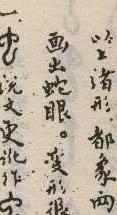 以上诸形，都象两
画出蛇眼。变形很
说文更讹作